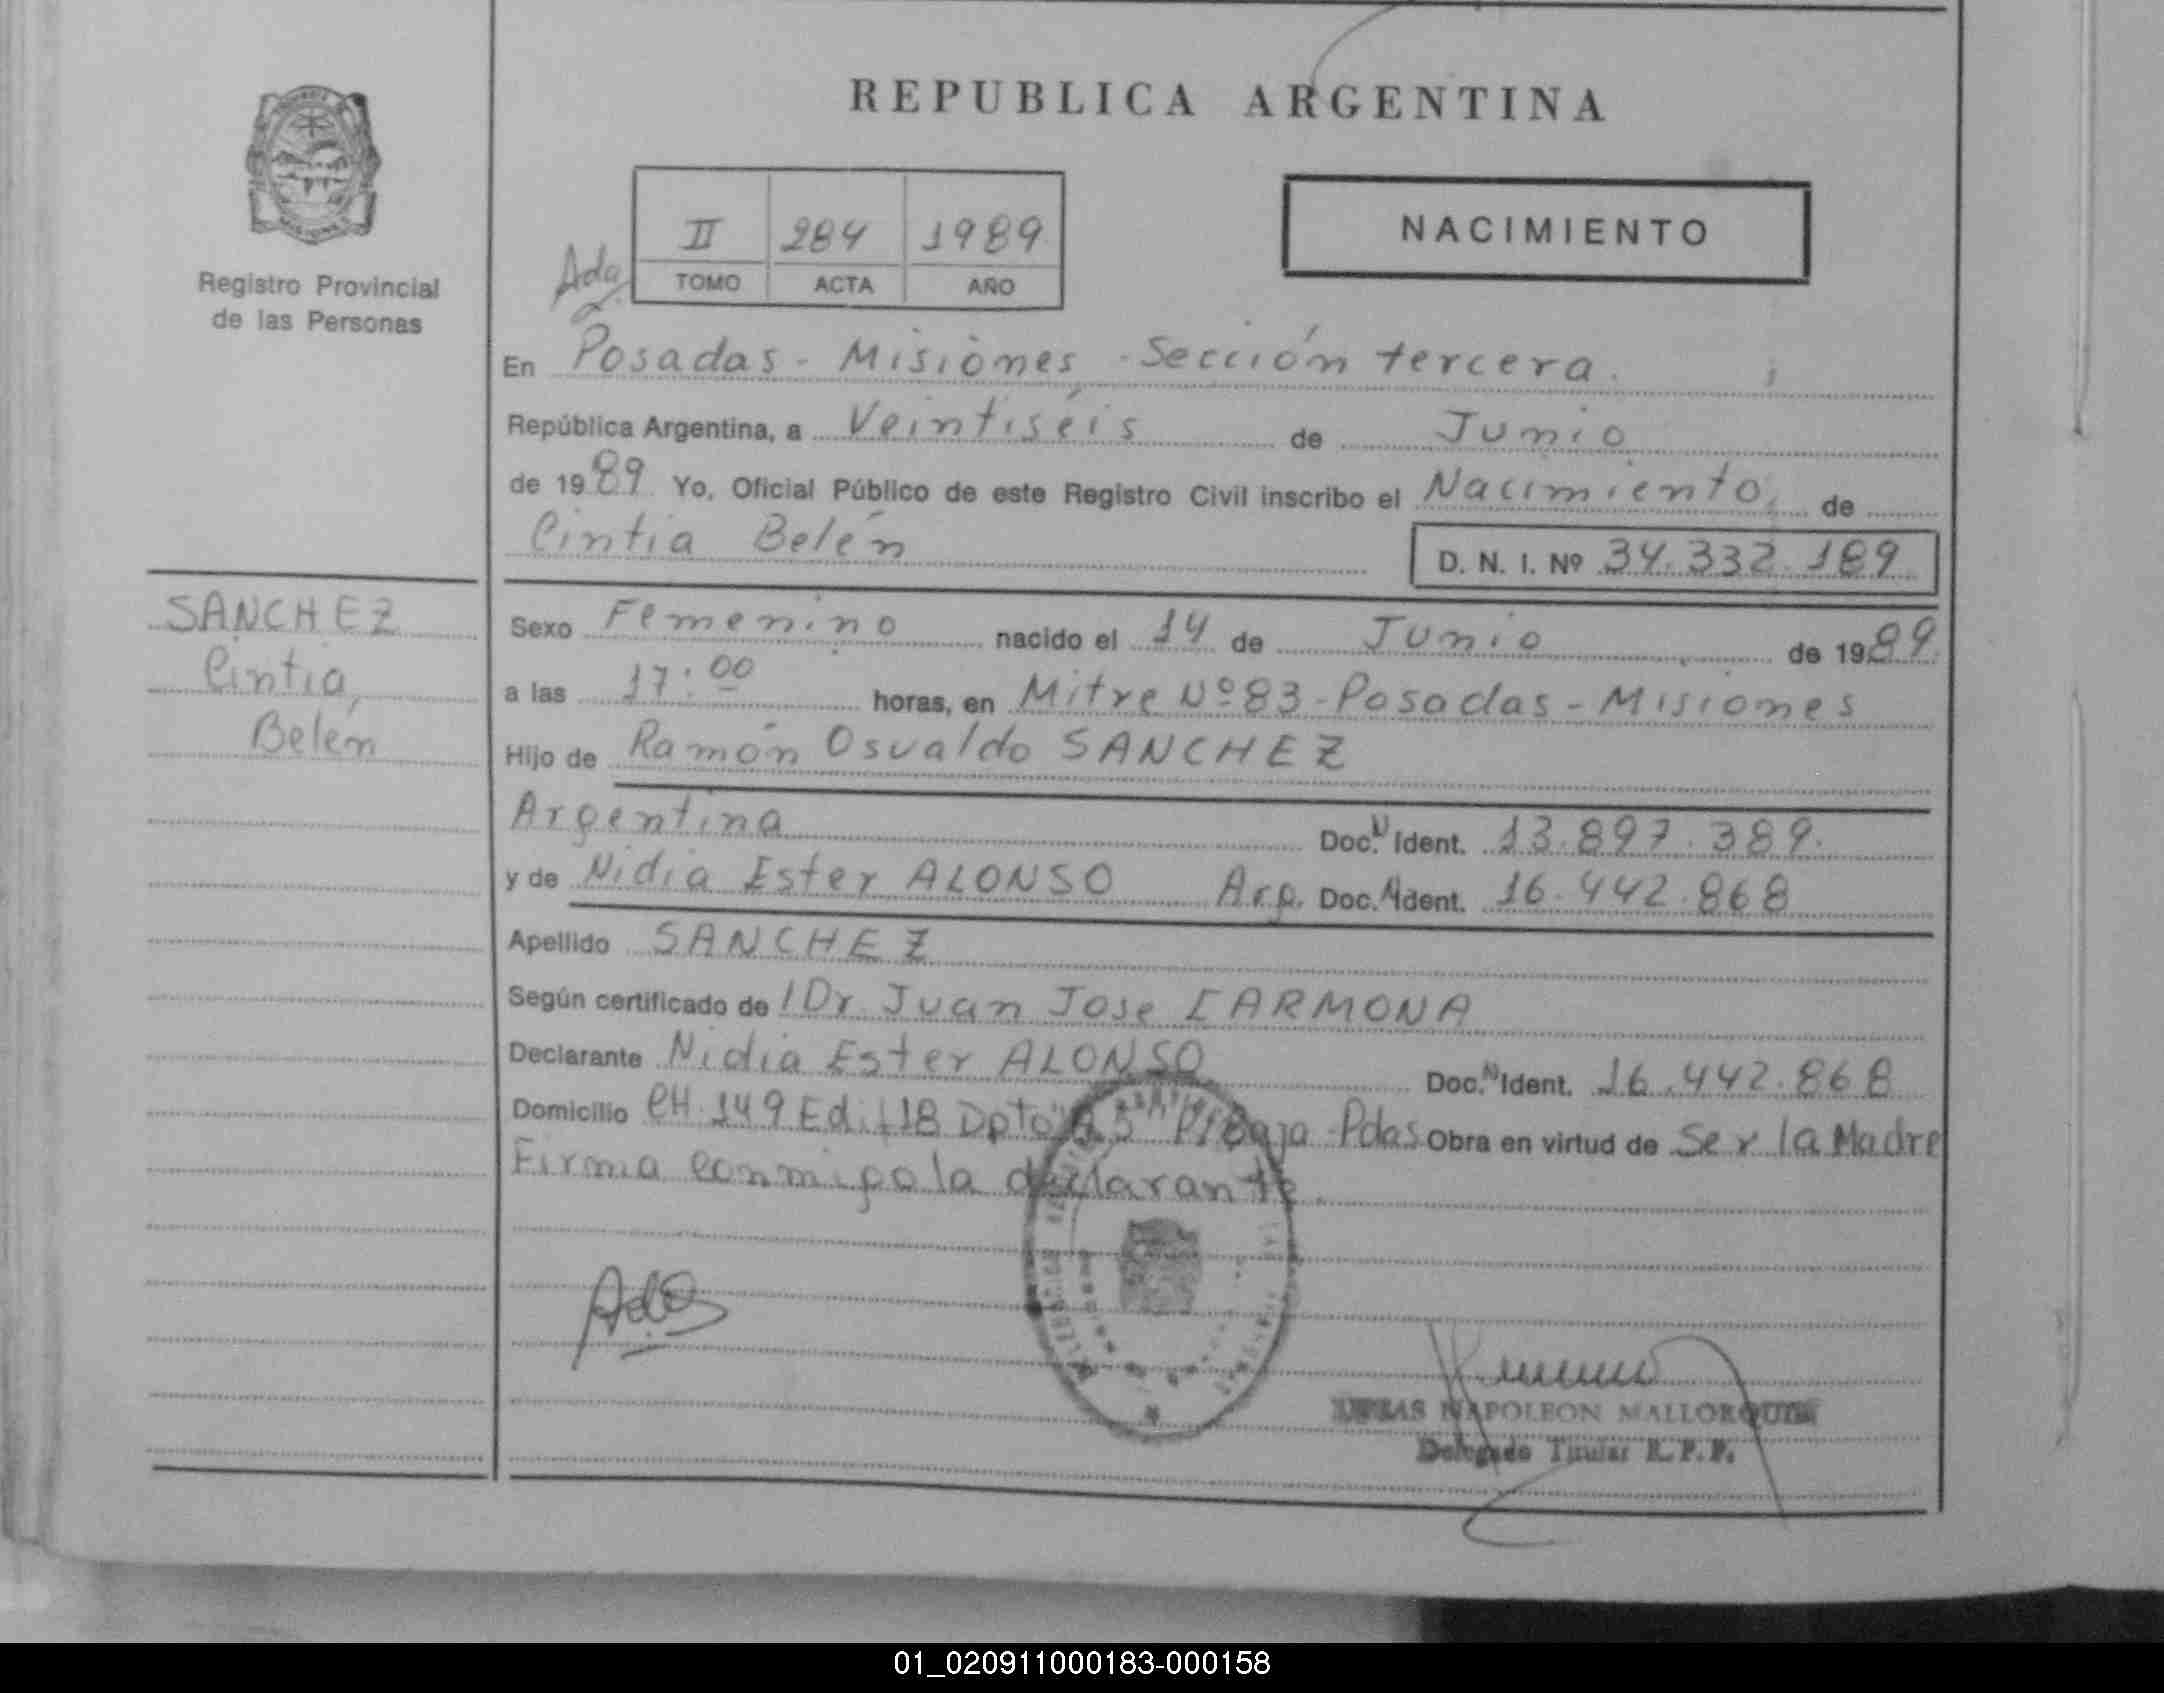 REPUBLICA ARGENTINA
Registro Provincial
de las Personas
II 284 1989
TOMO ACTA AÑO
NACIMIENTO
En Posadas - Misiones - Sección tercera.
República Argentina, a Veintiséis de Junio
de 1989 Yo, Oficial Público de este Registro Civil inscribo el Nacimiento, de
Cintia Belén
D. N. I. Nº 34.332.189
SANCHEZ
Cintia,
Belén
Sexo Femenino nacido el 14 de Junio de 1989.
a las 17:00 horas, en Mitre Nº 83 - Posadas - Misiones
Hijo de Ramón Osvaldo SANCHEZ
Argentina Doc. N Ident. 13.897.389.
y de Nidia Ester ALONSO Arg. Doc. N Ident. 16.442.868
Apellido SANCHEZ
Según certificado de / Dr. Juan Jose CARMONA
Declarante Nidia Ester ALONSO Doc. N Ident. 16.442.868
Domicilio CH. 149 Edif 18 Dpto Baja - Pdas Obra en virtud de Ser la Madre
Firma conmigo la declarante.
NAPOLEON MALLORQUIN
Delegado Titular R. P. P.
01_020911000183-000158